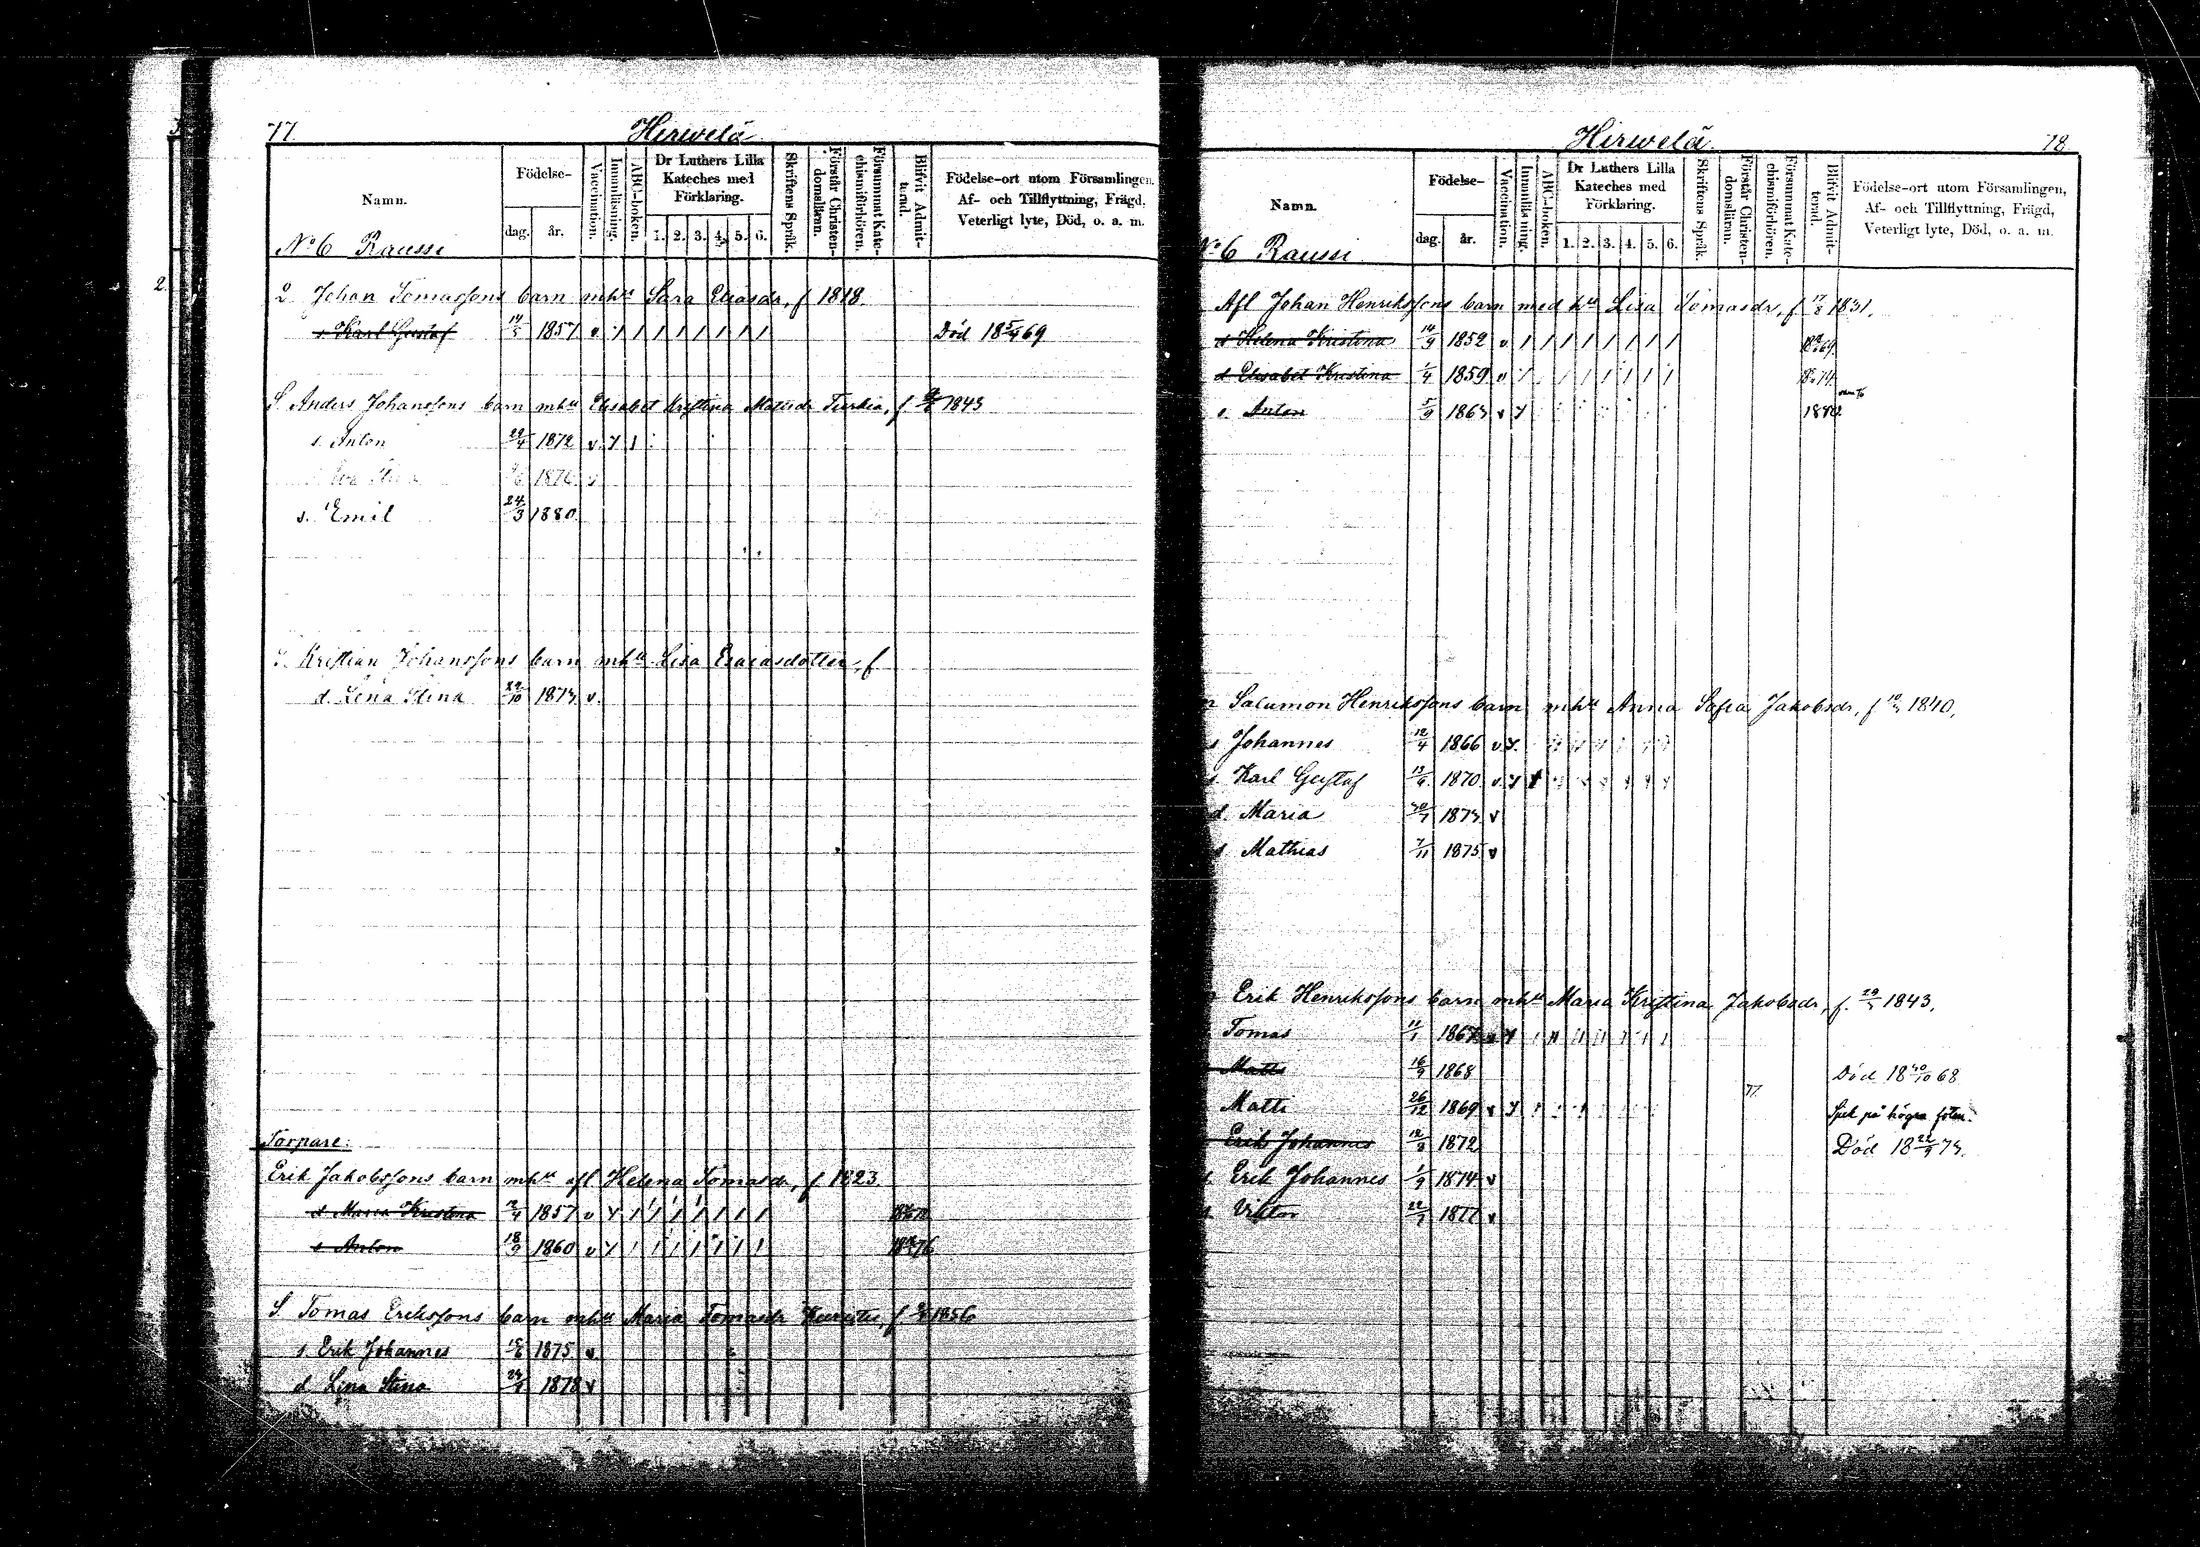 77.
Hirwelä
Namn.
Födelse-
dag. år.
Vaccination.
Innanläsning.
ABC-boken.
Dr Luthers Lilla Kateches med Förklaring.
1. 2. 3. 4. 5. 6.
Skriftens Språk.
Förstår Christendomsläran.
Försummat Katechismiförhören.
Blifvit Admitterad.
Födelse-ort utom Församlingen,
Af- och Tillflyttning, Frägd,
Veterligt lyte, Död, o. a. m.
No 6 Raussi
2 Johan Tomassons barn mhu Sara Eliasdr, f 1818
s Karl Gustaf 1857 v Död 18 5/4 69
S. Anders Johanssons barn mhu Elisabet Kristina Matsdr Turkia, f 1843
s. Anton 29/4 1872 v
Stina 1876 v
s. Emil 24/3 1880
S. Kristian Johanssons barn mhu Lisa Esaiasdotter, f
d. Lena Stina 22/10 1873 v.
Torpare:
Erik Jakobssons barn mhu afl Helena Tomasdr, f 1823
d Maria Kristina 1857 v
s Anton 18/9 1860 v
S. Tomas Erikssons barn mhu Maria Tomasdr, f 1856
s. Erik Johannes 1875 v
d Lena Stina 1878 v
Hirwelä.
78
Namn.
Födelse-
dag. år.
Vaccination.
Innanläsning.
ABC-boken.
Dr Luthers Lilla Kateches med Förklaring.
1. 2. 3. 4. 5. 6.
Skriftens Språk.
Förstår Christendomsläran.
Försummat Katechismiförhören.
Blifvit Admitterad.
Födelse-ort utom Församlingen,
Af- och Tillflyttning, Frägd,
Veterligt lyte, Död, o. a. m.
No 6 Raussi
Afl Johan Henrikssons barn med hu Lisa Tomasdr, f 1831.
d Helena Kristina 14/9 1852 v
d Elisabet Kristina 1/4 1859 v
s. Anton 5/9 1863 v
Salumon Henrikssons barn mhu Anna Safia Jakobsdr, f 1840,
s Johannes 12/4 1866 v
s. Karl Gustaf 1870 v
d. Maria 1873 v
s Mathias 7/11 1875 v
Erik Henrikssons barn mhu Maria Kristina Jakobsdr, f. 1843,
Tomas 11/1 1867
Matts 16/9 1868 Död 18 30/10 68
Matti 26/12 1869 v
Erik Johannes 1872 Död 18 73.
s. Erik Johannes 1/9 1874 v
s. Viktor 22/7 1877 v